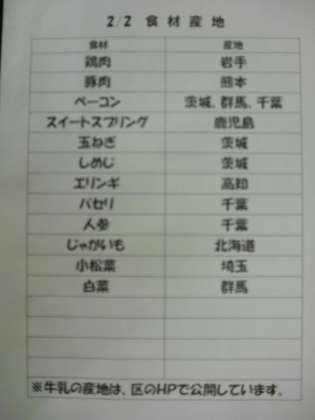 2/2 食材産地
食材 産地
鶏肉 岩手
豚肉 熊本
ベーコン 茨城、群馬、千葉
スイートスプリング 鹿児島
玉ねぎ 茨城
しめじ 茨城
エリンギ 高知
パセリ 千葉
人参 千葉
じゃがいも 北海道
小松菜 埼玉
白菜 群馬
※牛乳の産地は、区のHPで公開しています。